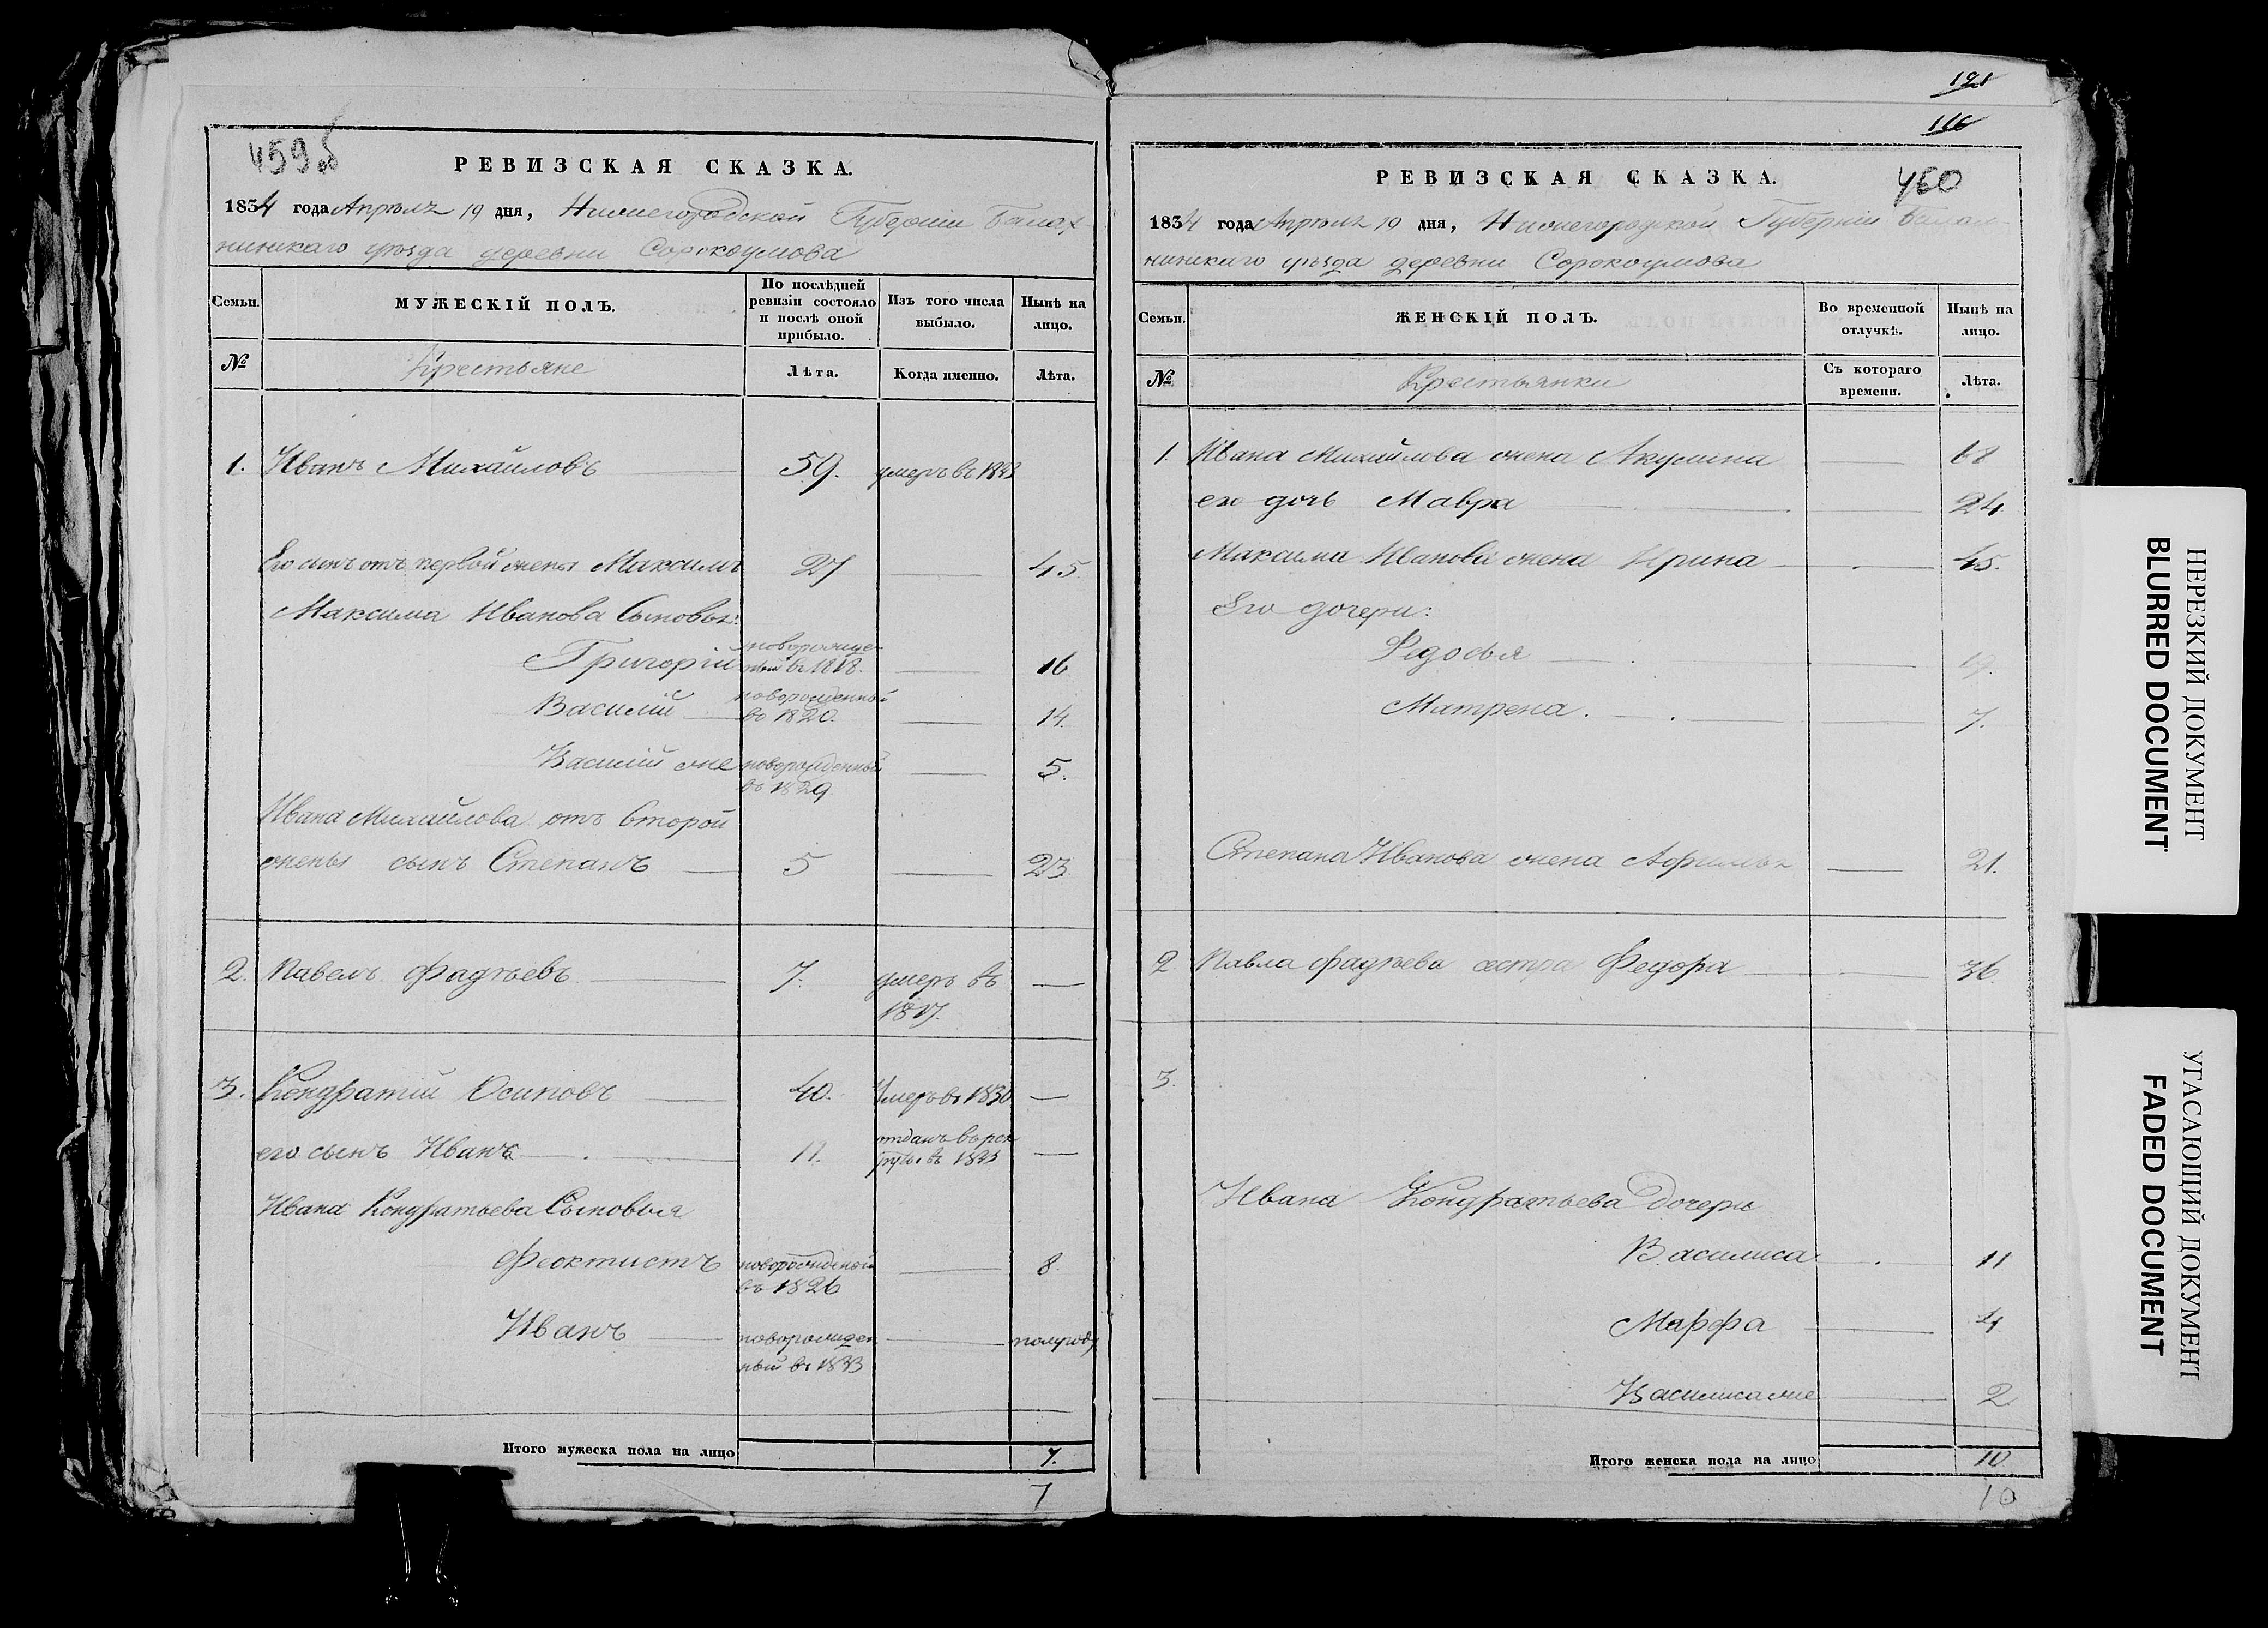 459об
РЕВИЗСКАЯ СКАЗКА.
1834 года Апрѣля 19 дня, Нижегородской Губерніи Балах-
нинскаго уѣзда деревни Сорокоумова
Семьи.
МУЖЕСКІЙ ПОЛЪ.
По послѣдней ревизіи состояло и послѣ оной прибыло.
Изъ того числа выбыло.
Нынѣ на лицо.
№ Крестьяне Лѣта. Когда именно. Лѣта.
1. Иванъ Михайловъ 59. умеръ въ 1833
Его сынъ отъ первой жены Максимъ 27 45.
Максима Иванова Сыновья:
Григорій новорожден-
ный въ 1818. 16
Василій новорожденный
въ 1820. 14.
Василій же новорожденный
въ 1829 5.
Ивана Михайлова отъ второй
жены сынъ Степанъ 5 23.
2. Павелъ Фадѣевъ 7. умеръ въ
1817.
3. Кондратій Осиповъ 40. Умеръ въ 1830
его сынъ Иванъ 11. отданъ въ рек
руты въ
Ивана Кондратьева Сыновья
Феоктистъ новорожденной
въ 1826 8
Иванъ новорожден
ный въ 1833 полугоду
Итого мужеска пола на лицо 7.
7
191
116
460
РЕВИЗСКАЯ СКАЗКА.
1834 года Апрѣля 19 дня, Нижегородской Губерніи Балах-
нинскаго уѣзда деревни Сорокоумова
Семьи.
ЖЕНСКІЙ ПОЛЪ.
Во временной отлучкѣ.
Нынѣ на лицо.
№ Крестьянки Съ котораго времени. Лѣта.
1. Ивана Михайлова жена Акулина 68
его дочь Мавра 24
Максима Иванова жена Ирина 45.
Его дочери:
Федосья 19.
Матрена. 7.
Степана Иванова жена 21.
2 Павла Фадѣева сестра Федора 36.
3.
Ивана Кондратьева дочери
Василиса 11
Марфа 4
Василиса же 2
Итого женска пола на лицо 10
10
НЕРЕЗКИЙ ДОКУМЕНТ
BLURRED DOCUMENT
УГАСАЮЩИЙ ДОКУМЕНТ
FADED DOCUMENT